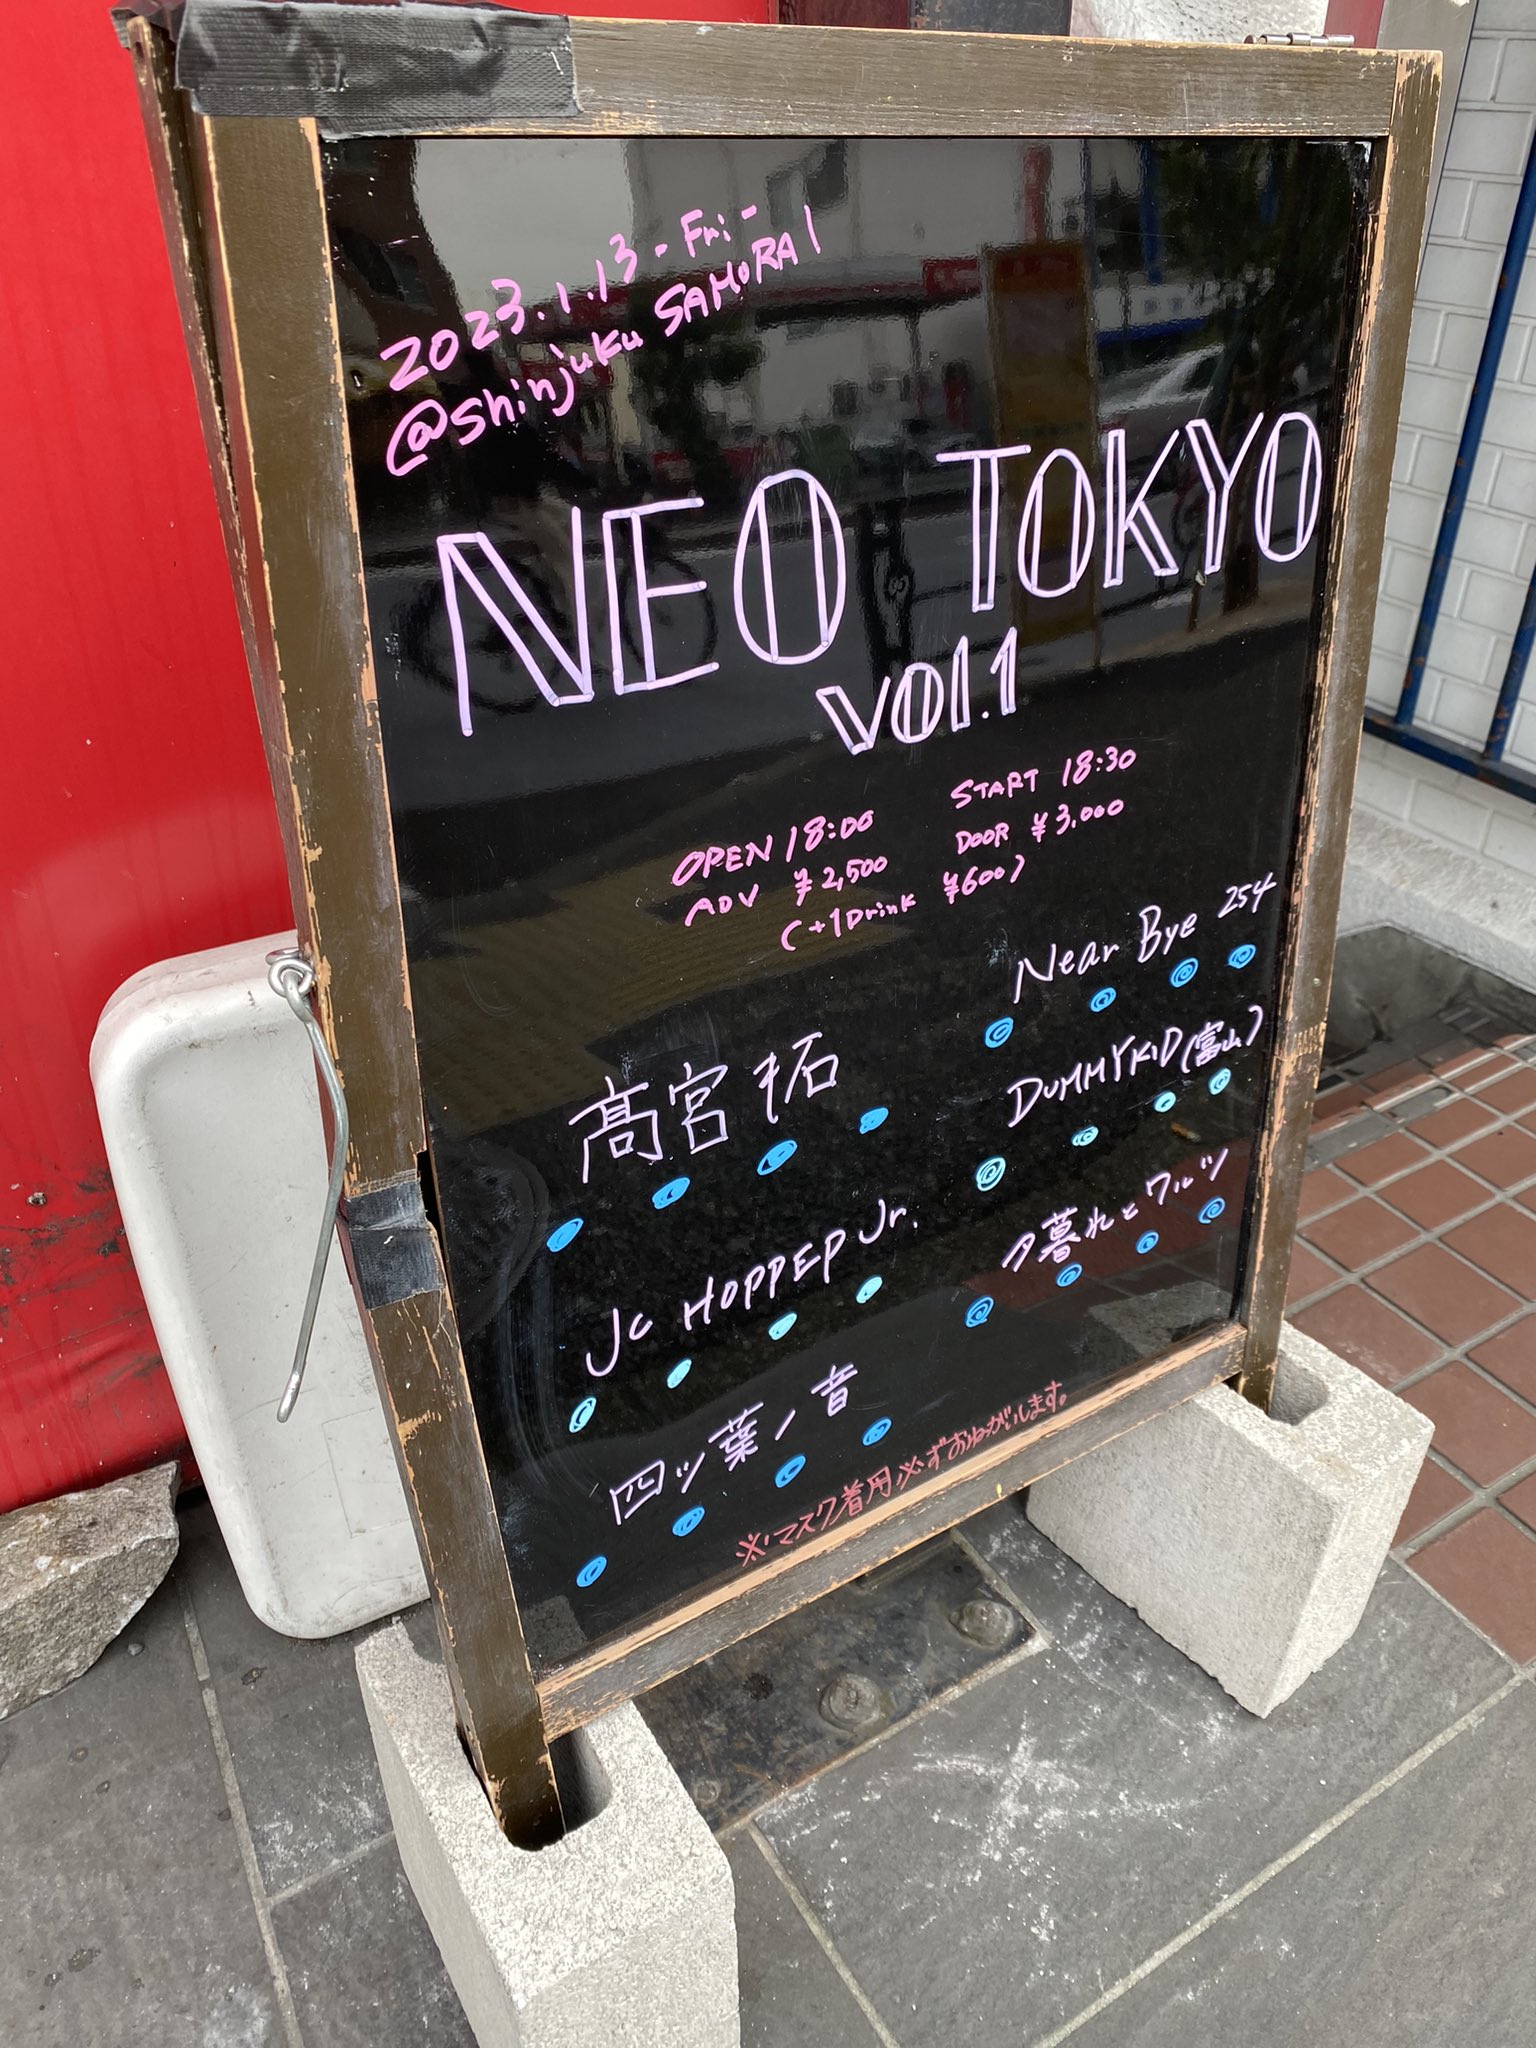 2023.1.13-Fri-
@Shinjuku SAMURAI
NEO TOKYO
vol.1
OPEN 18:00 START 18:30
ADV ¥2,500 DOOR ¥3,000
(+1Drink ¥600)
Near Bye 254
髙宮 拓
DUMMYKID(富山)
JC HOPPER Jr.
夕暮れとワルツ
四ッ葉ノ音
※マスク着用必ずおねがいします。